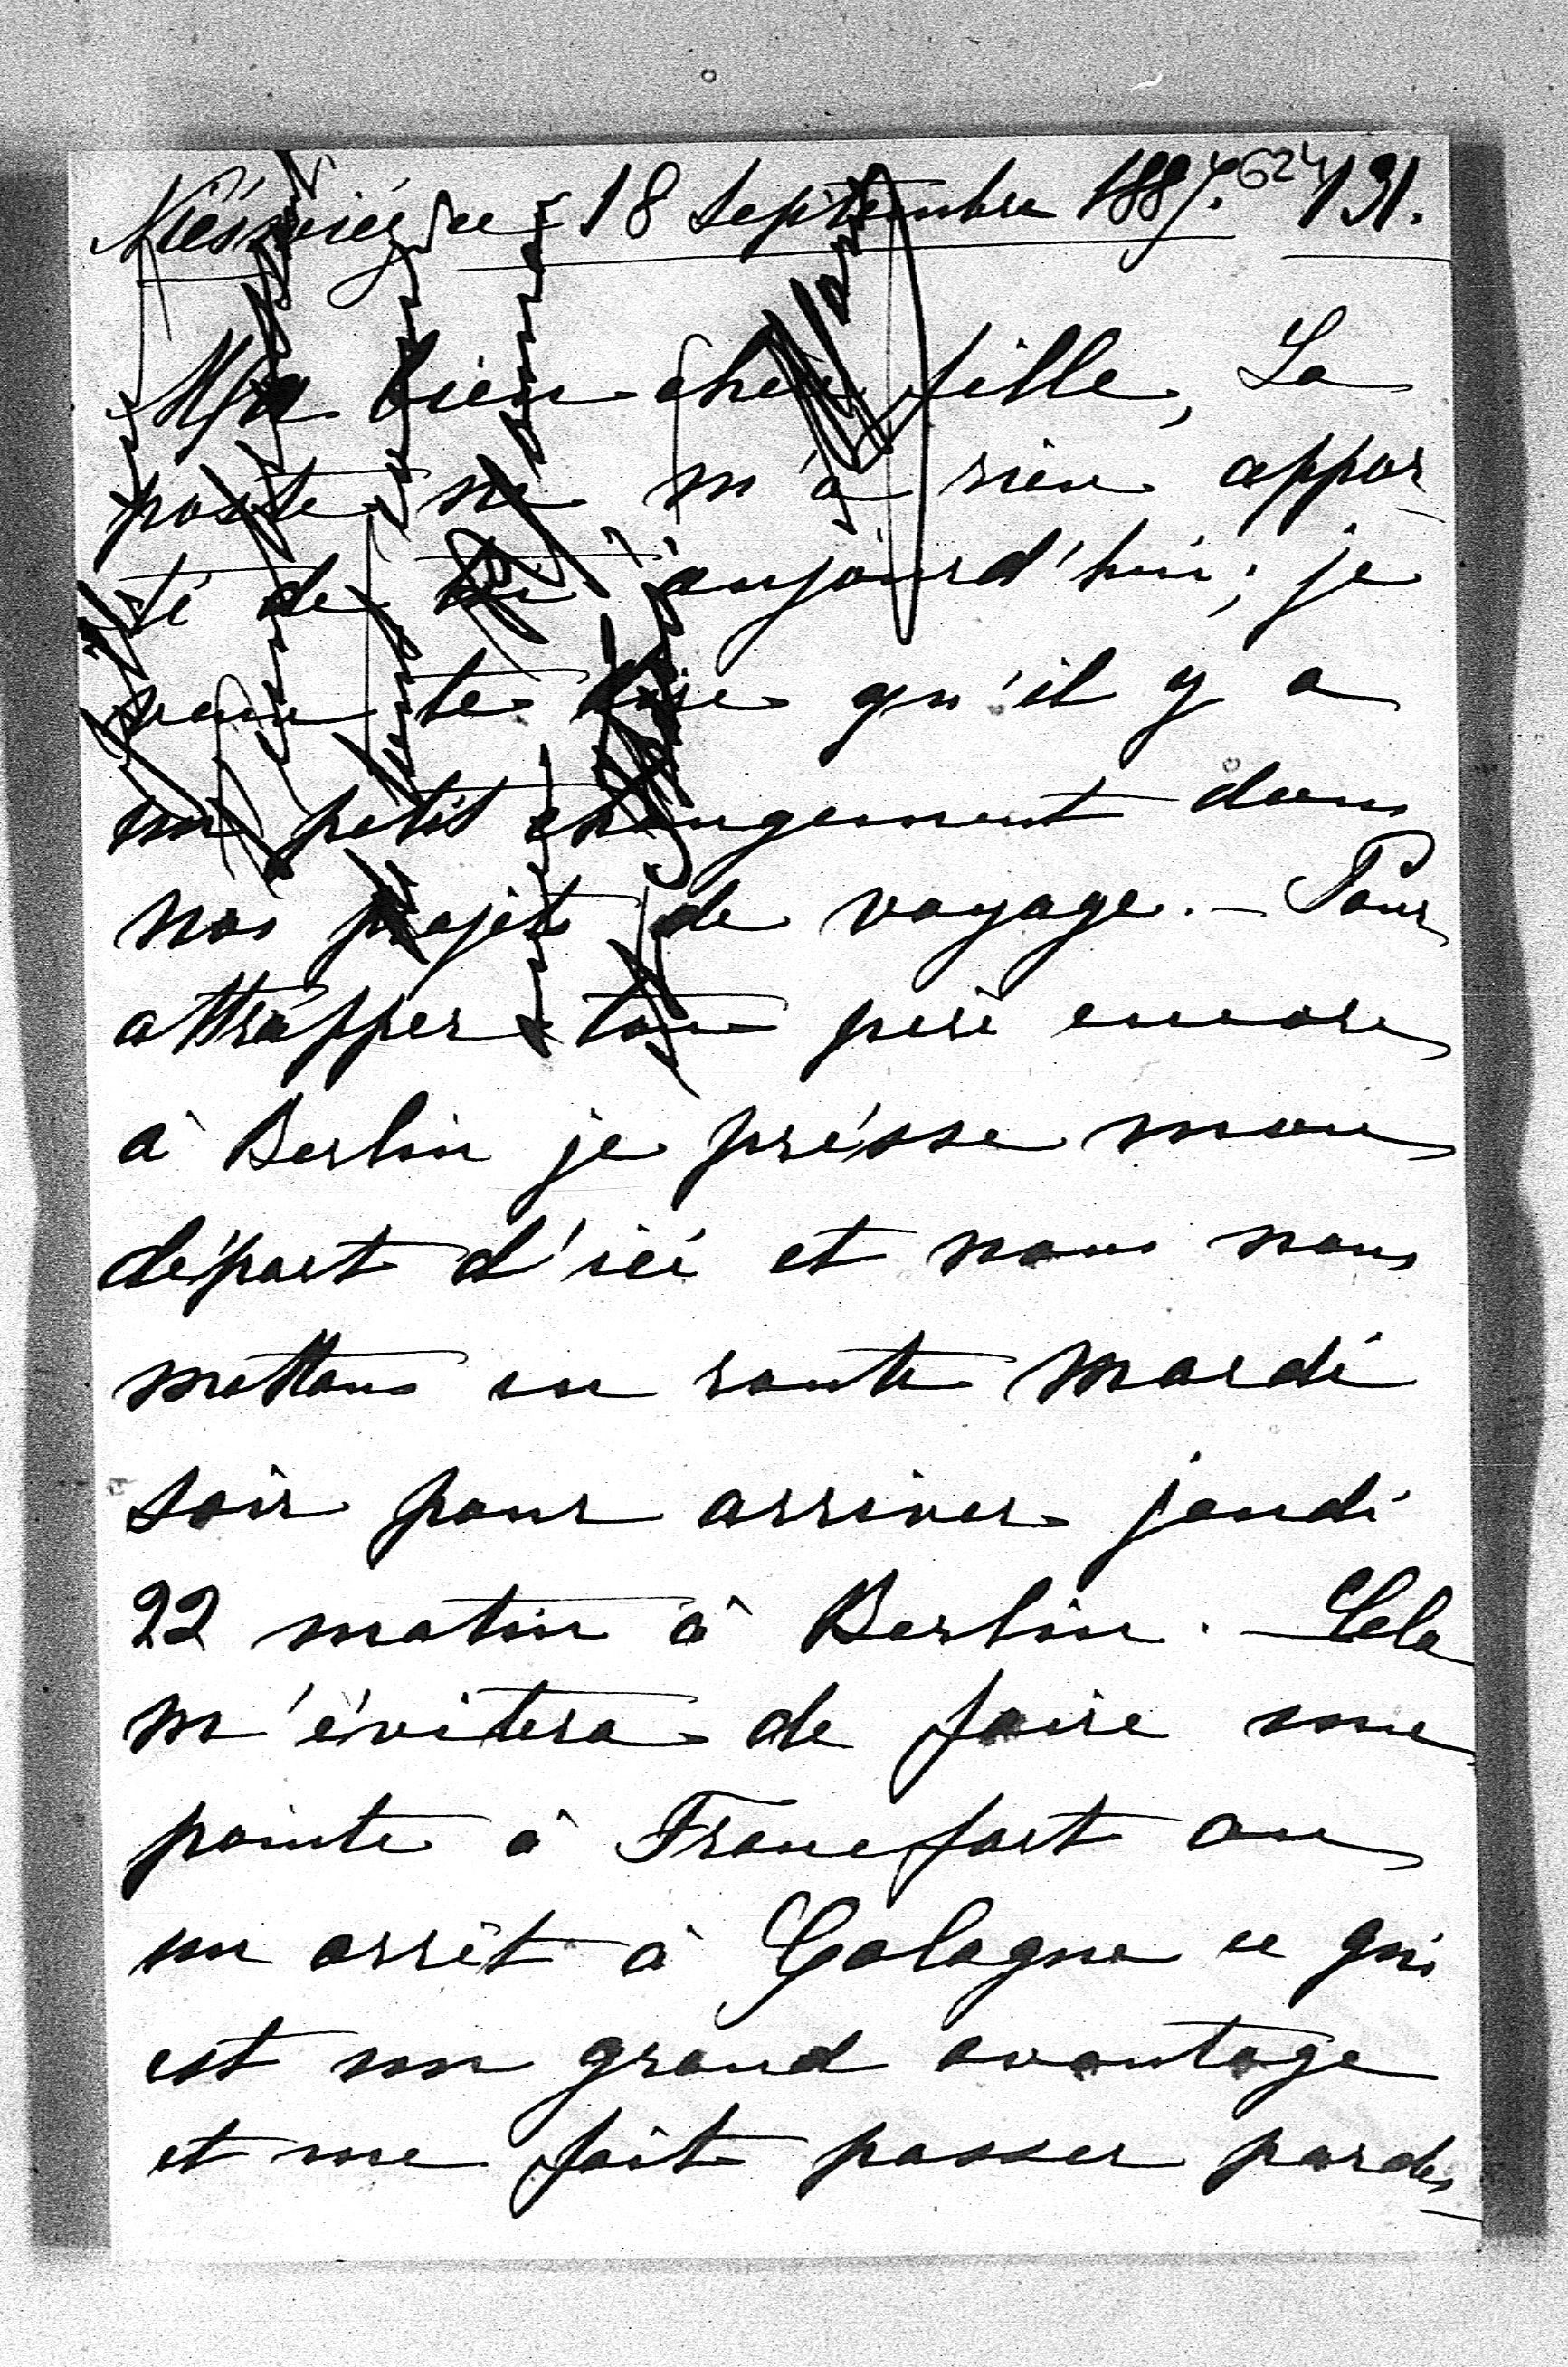 Niésviéz ce 18 Septembre 1887. 624 131.
Ma bien chère fille, La
poste ne m'a rien appor-
té de toi aujourd'hui; je
veux te dire qu'il y a
un petit changement dans
nos projets de voyage. — Pour
attrapper ton père encore
à Berlin je présse mon
départ d'ici et nous nous
mettons en route Mardi
soir pour arriver jeudi
22 matin à Berlin. — Cela
m'évitera de faire une
pointe à Francfort ou
un arrêt à Cologne ce qui
est un grand avantage
et me fait passer par des-